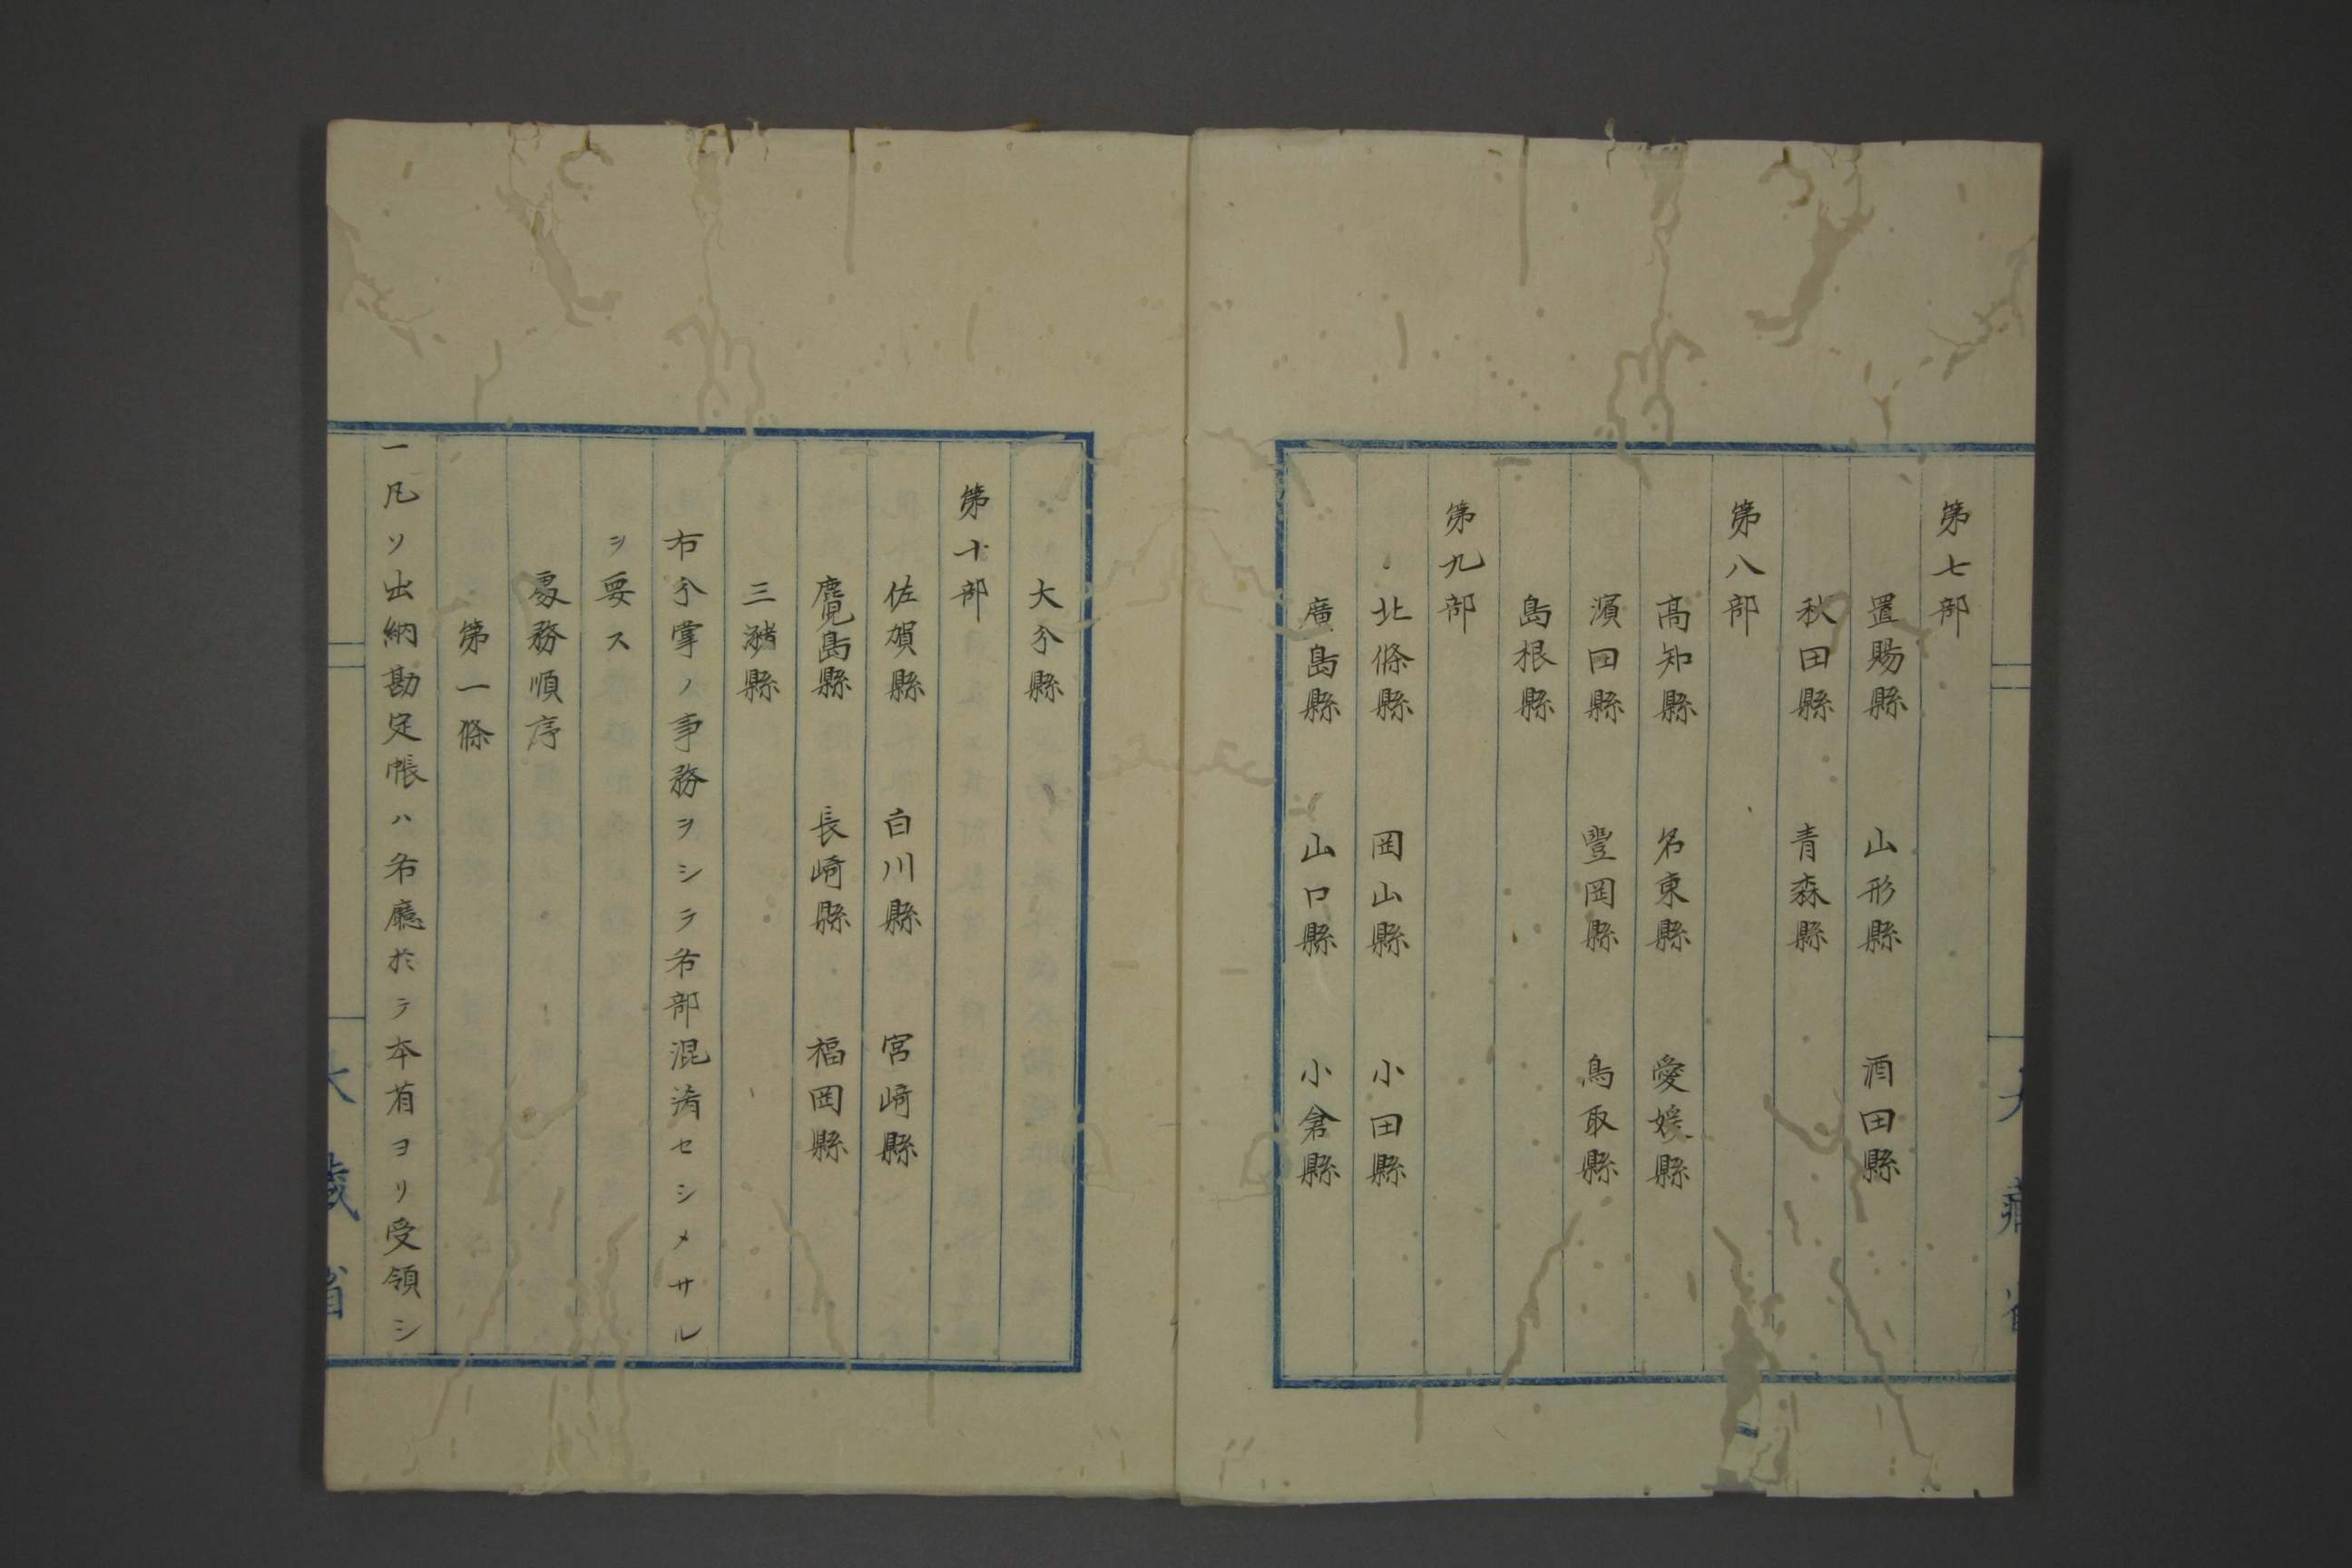 第七部
置賜縣 山形縣 酒田縣
秋田縣 青森縣
第八部
高知縣 名東縣 愛媛縣
濱田縣 豐岡縣 鳥取縣
島根縣
第九部
北條縣 岡山縣 小田縣
廣島縣 山口縣 小倉縣
大分縣
第十部
佐賀縣 白川縣 宮崎縣
麑島縣 長崎縣 福岡縣
三潴縣
右分掌ノ事務ヲシテ各部混淆セシメサル
ヲ要ス
處務順序
第一條
一凡ソ出納勘定帳ハ各廳於テ本省ヨリ受領シ
大藏省
大藏省